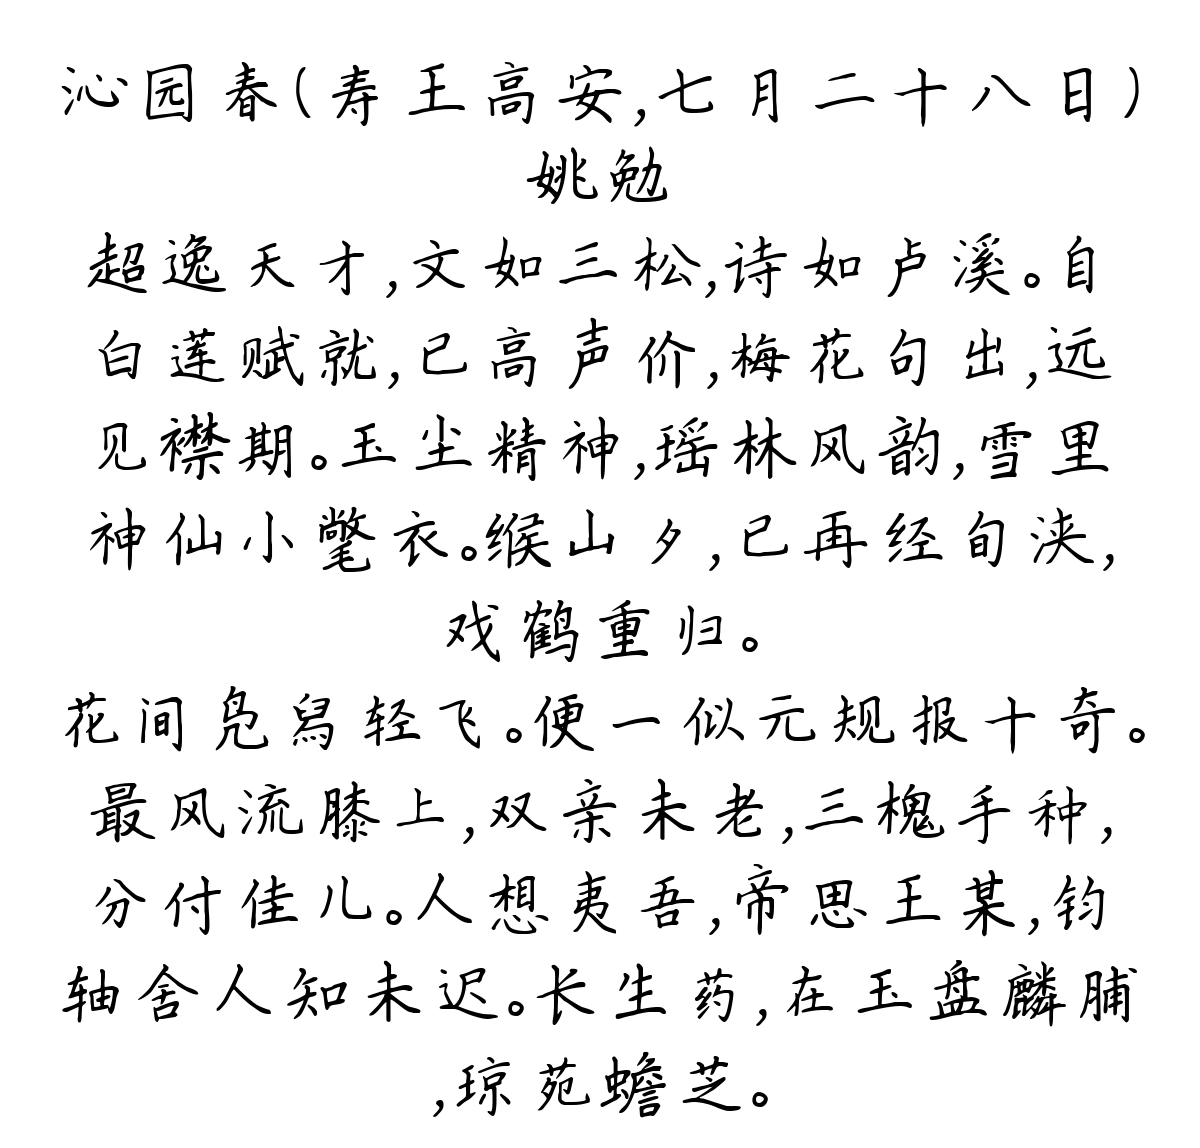 沁园春(寿王高安,七月二十八日)
姚勉
超逸天才,文如三松,诗如卢溪。自
白莲赋就,已高声价,梅花句出,远
见襟期。玉尘精神,瑶林风韵,雪里
神仙小氅衣。缑山夕,已再经旬浃,
戏鹤重归。
花间凫舄轻飞。便一似元规报十奇。
最风流膝上,双亲未老,三槐手种,
分付佳儿。人想夷吾,帝思王某,钧
轴舍人知未迟。长生药,在玉盘麟脯
,琼苑蟾芝。